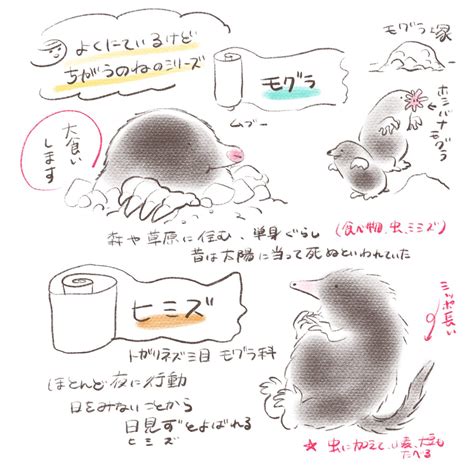 よくにているけど
ちがうのねのシリーズ
モグラ
モグラ塚
ムプー
ホシバナ
モグラ
大食い
します
森や草原に住む、単身ぐらし
(食べ物、虫、ミミズ)
昔は太陽に当って死ぬといわれていた
ヒミズ
シッポ長い
トガリネズミ目 モグラ科
ほとんど夜に行動
日をみないことから
日見ずとよばれる
ヒミズ
★ 虫に加えて、麦、大豆も
たべる